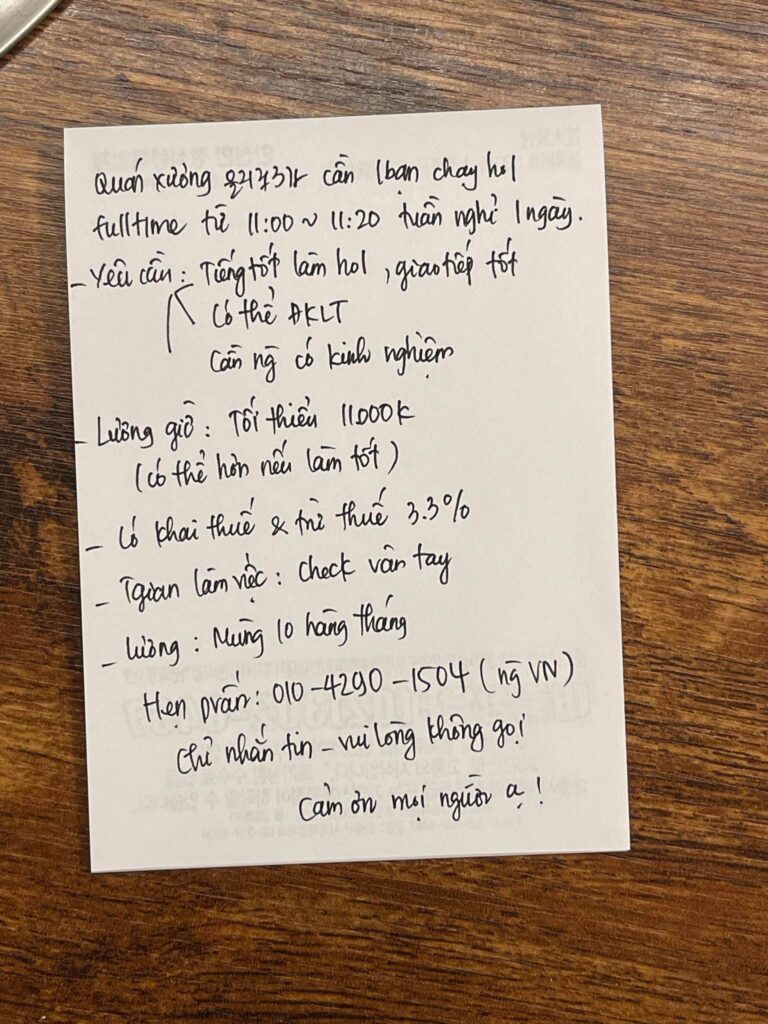 Quán xưởng 유리공장 cần 1 bạn chạy hol
fulltime từ 11:00 ~ 11:20 tuần nghỉ 1 ngày.
- Yêu cần: Tiếng tốt làm hol, giao tiếp tốt
Có thể ĐKLT
Cần ng̃ có kinh nghiệm
- Lương giờ: Tối thiểu 11.000k
(có thể hơn nếu làm tốt)
- Có khai thuế & trừ thuế 3.3%
- Tgian làm việc: Check vân tay
- Lương: Mùng 10 hàng tháng
Hẹn pvấn: 010-4290-1504 (ng̃ VN)
Chỉ nhắn tin - vui lòng không gọi
Cảm ơn mọi người ạ!